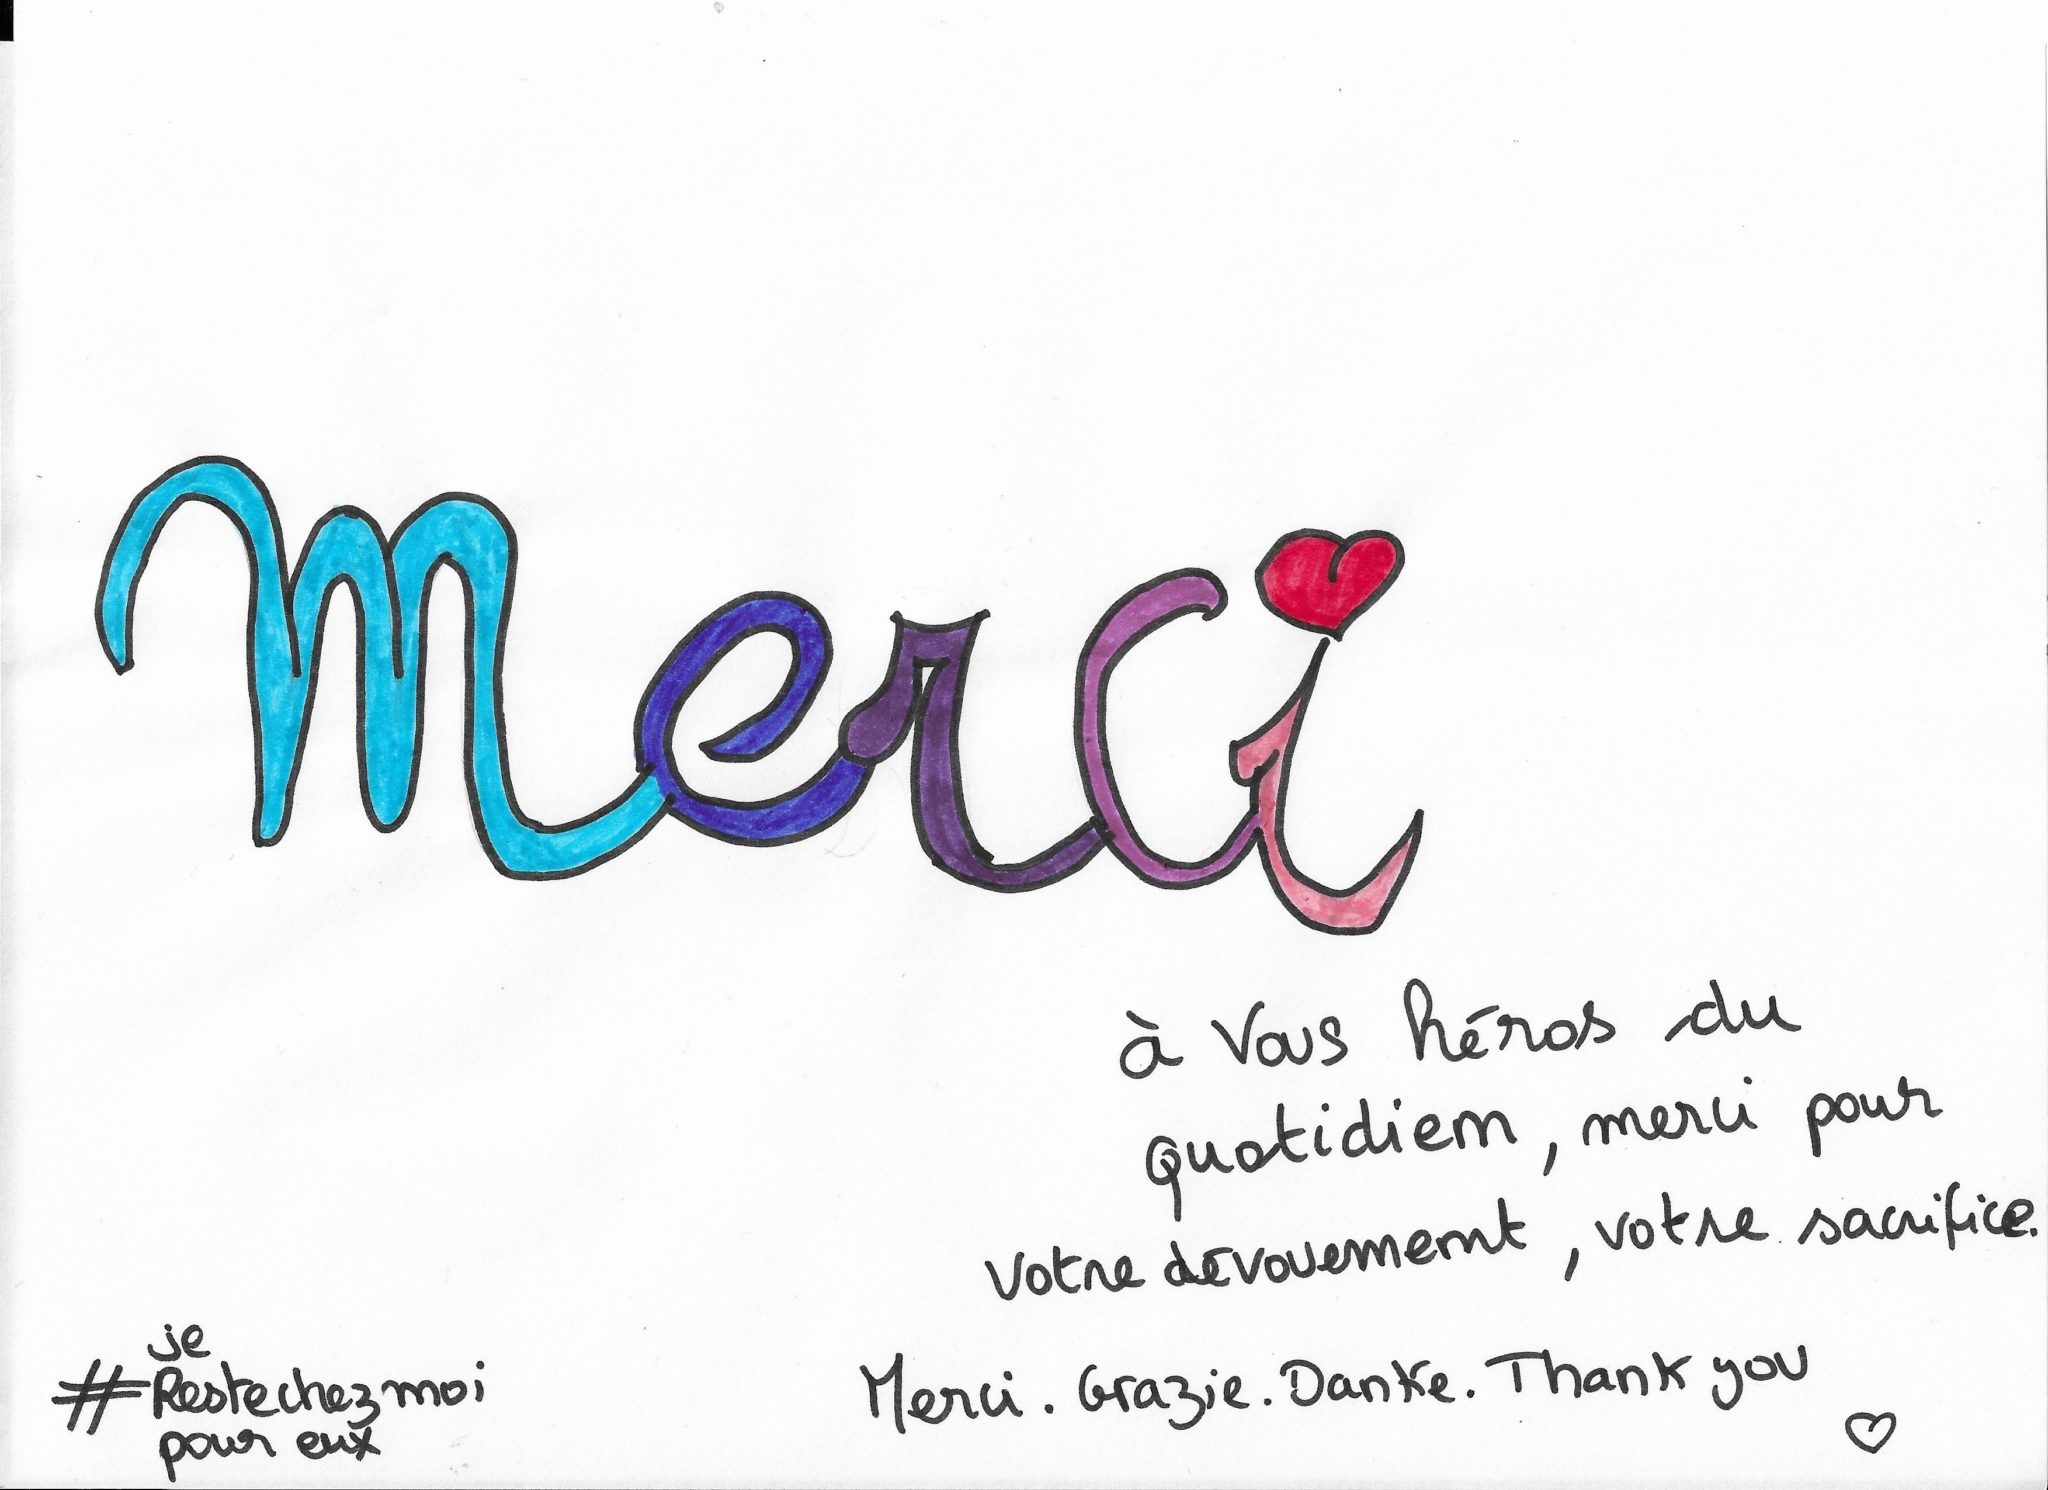 Merci
à vous héros du
quotidien, merci pour
votre dévouement, votre sacrifice.
Merci. Grazie. Danke. Thank you
#je
Restechezmoi
pour eux